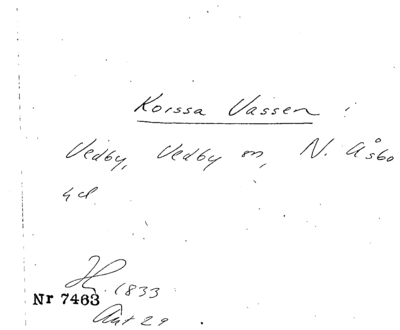 Korssa Vassen
Vedby, Vedby sn, N. Åsbo
hd
1833
Nr 7463
Ant 29